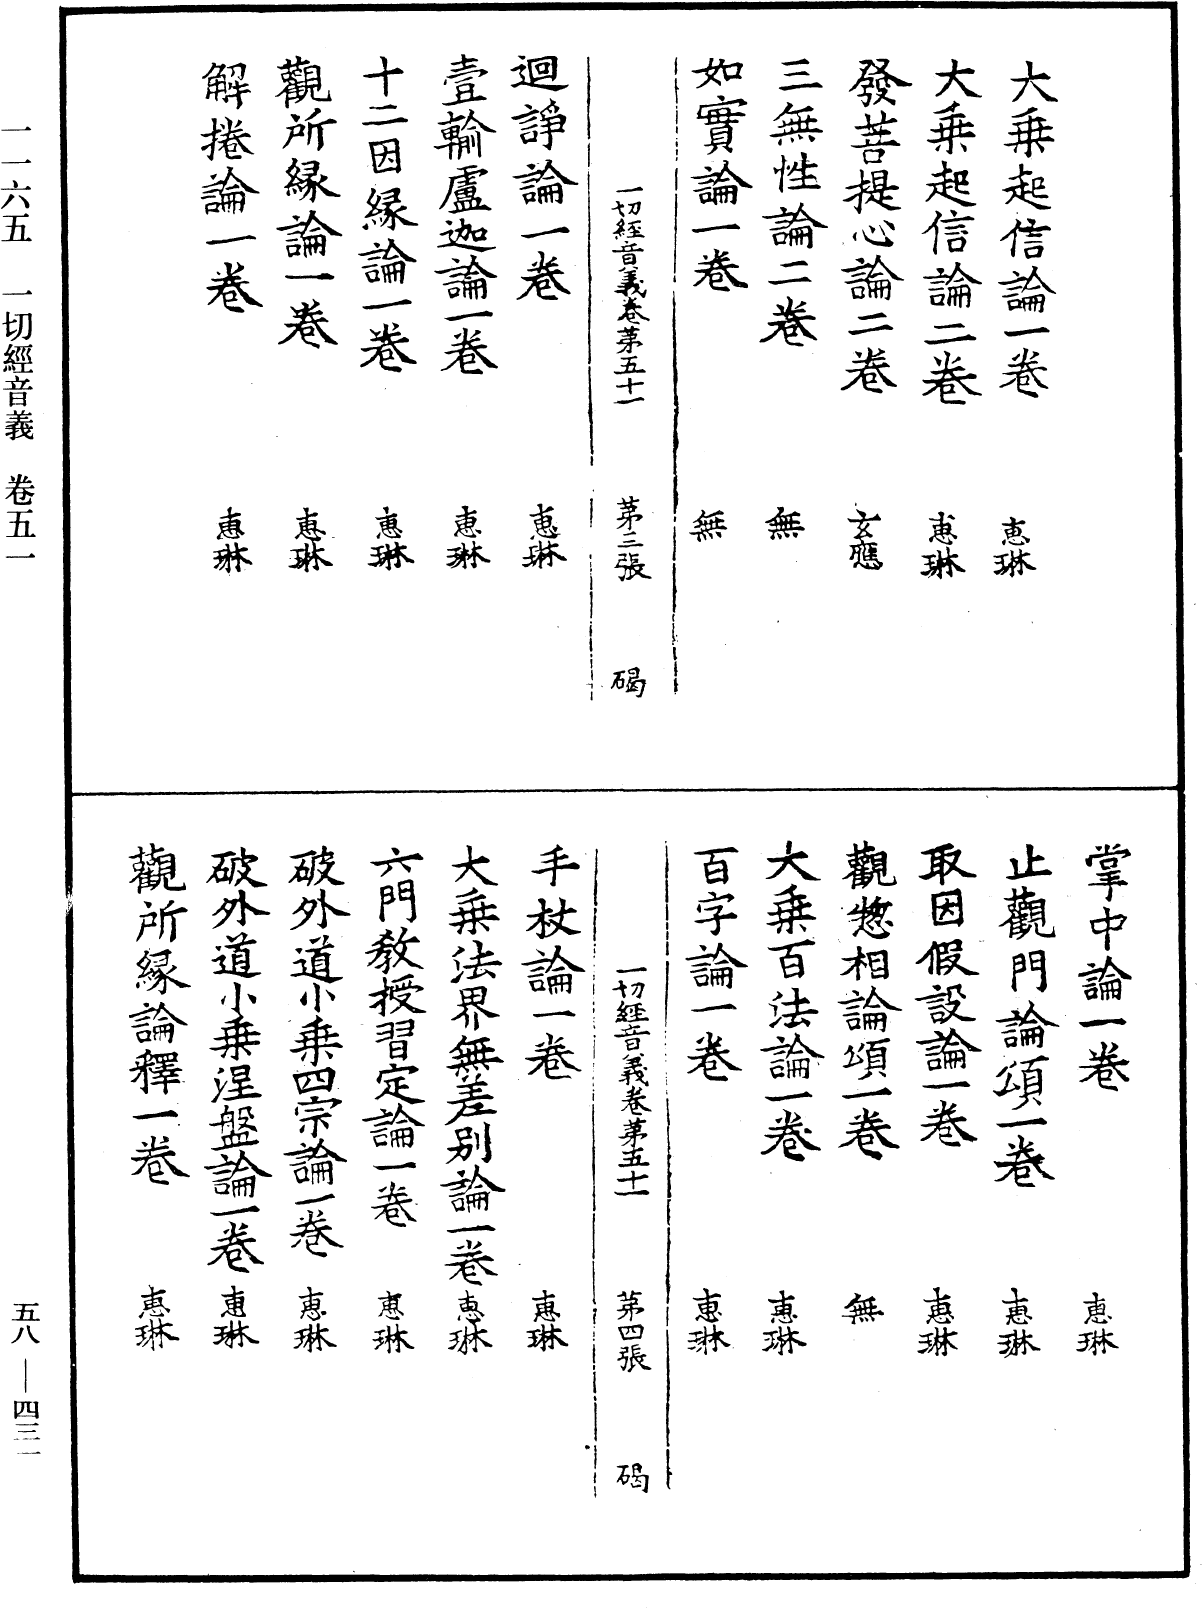 大乗起信論一卷　惠琳
大乗起信論二卷　惠琳
發菩提心論二卷　玄應
三無性論二卷　無
如實論一卷　無
一切經音義卷第五十一　第三張　碣
迴諍論一卷　惠琳
壹輸盧迦論一卷　惠琳
十二因縁論一卷　惠琳
觀所縁論一卷　惠琳
解捲論一卷　惠琳
掌中論一卷　惠琳
止觀門論頌一卷　惠琳
取因假設論一卷　惠琳
觀惣相論頌一卷　無
大乗百法論一卷　惠琳
百字論一卷　惠琳
一切經音義卷第五十一　第四張　碣
手杖論一卷　惠琳
大乗法界無差別論一卷　惠琳
六門教授習定論一卷　惠琳
破外道小乗四宗論一卷　惠琳
破外道小乗涅盤論一卷　惠琳
觀所縁論釋一卷　惠琳
一一六五　一切經音義　卷五一
五八—四三一